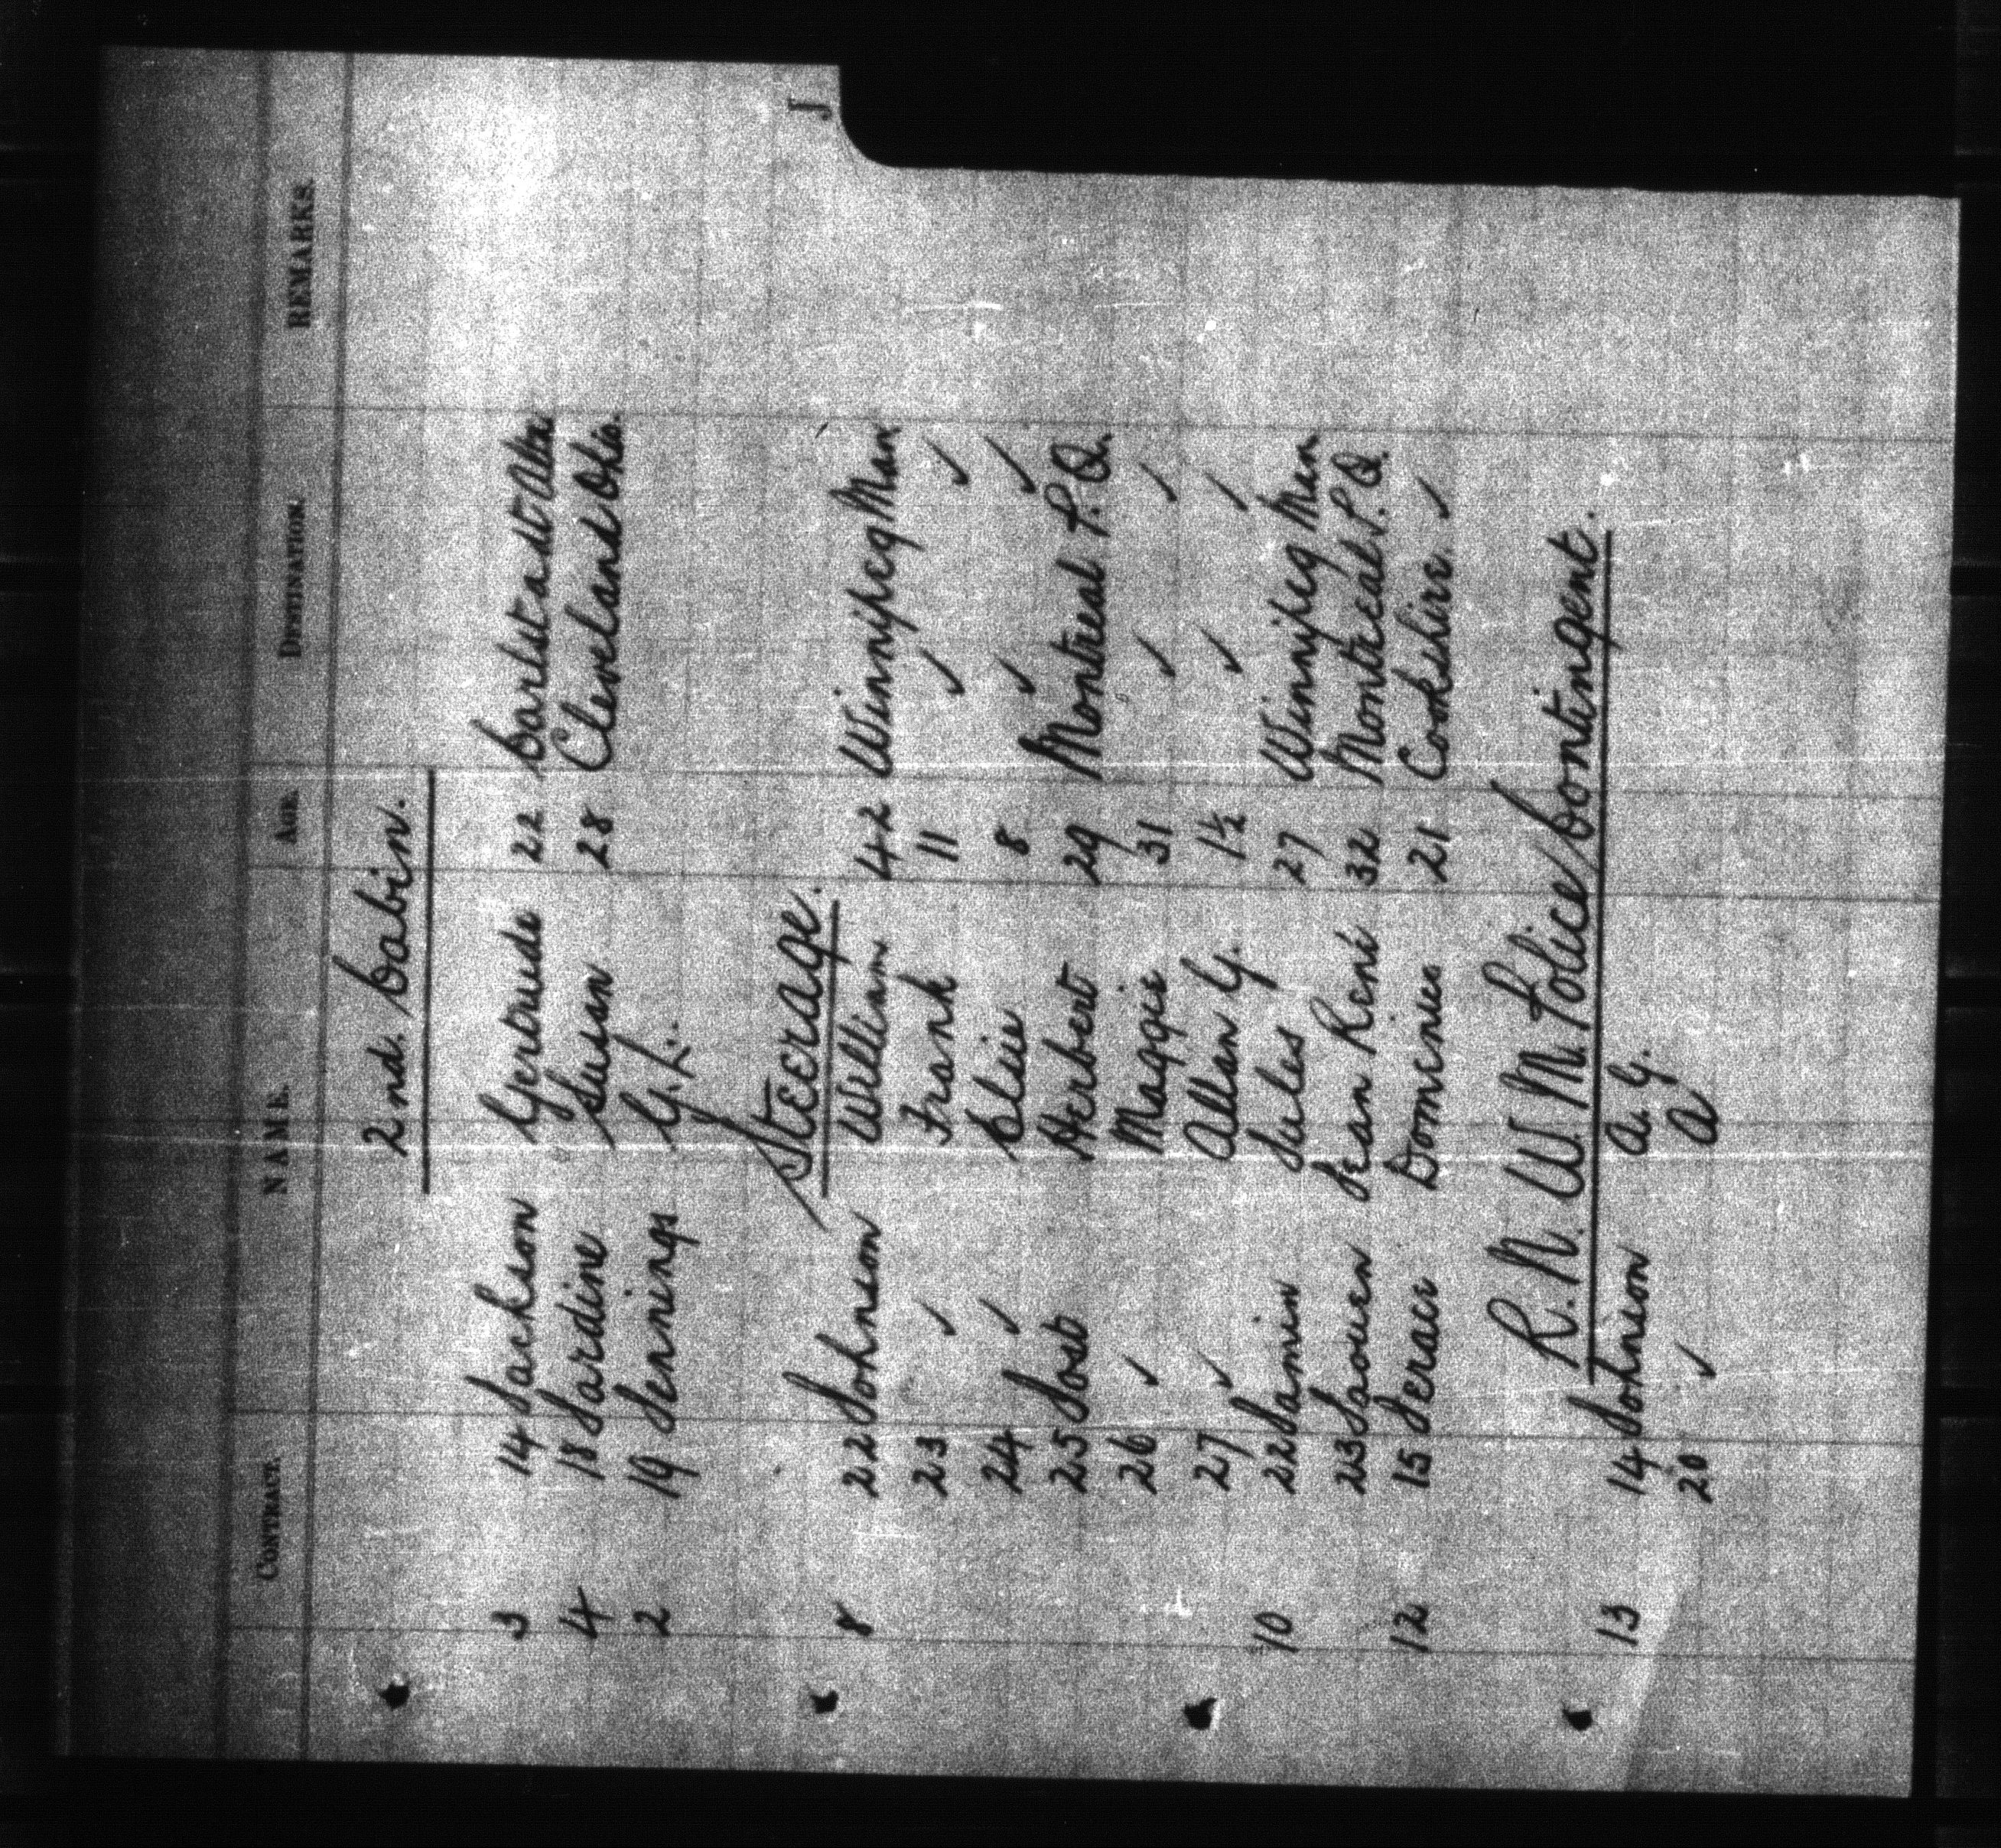 J
CONTRACT. NAME. AGE. DESTINATION. REMARKS.
2nd. Cabin.
3 14 Jackson Gertrude 22 Carlstadt Alta
4 18 Jardine Susan 28 Cleveland Ohio.
2 19 Jennings G. L.
Steerage.
8 22 Johnson William 42 Winnipeg Man
23 ✓ Frank 11 ✓ ✓
24 ✓ Elsie 8 ✓ ✓
25 Jost Herbert 29 Montreal P.Q.
26 ✓ Maggie 31 ✓ ✓
27 ✓ Allan G. 1½ ✓ ✓
10 22 Jamin Jules 27 Winnipeg Man
23 Jaouen Jean René 32 Montreal P.Q.
12 15 Jerace 21 Cookshire ✓
R. N. W. M. Police Contingent.
13 14 Johnson A. G.
20 ✓ A